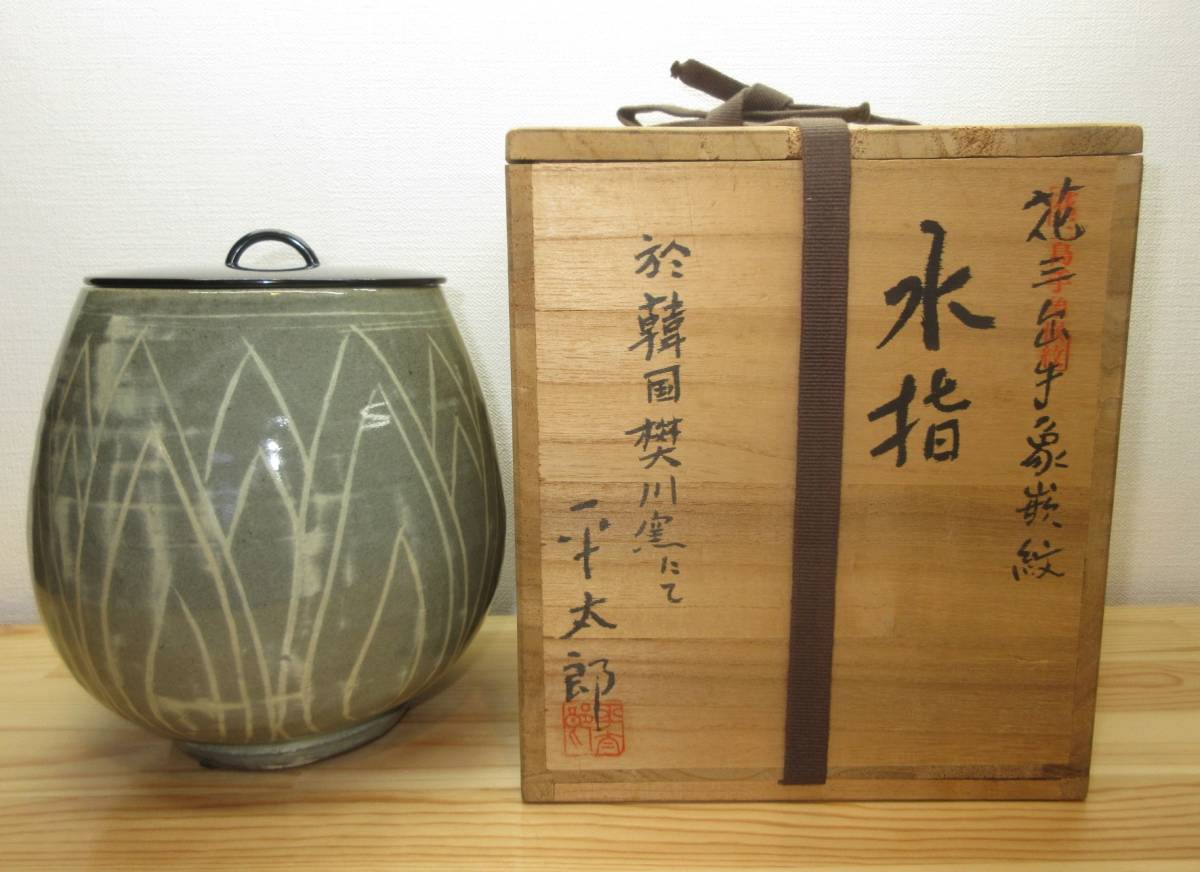 花三島手象嵌紋
水指
於韓国樊川窯にて
平太郎